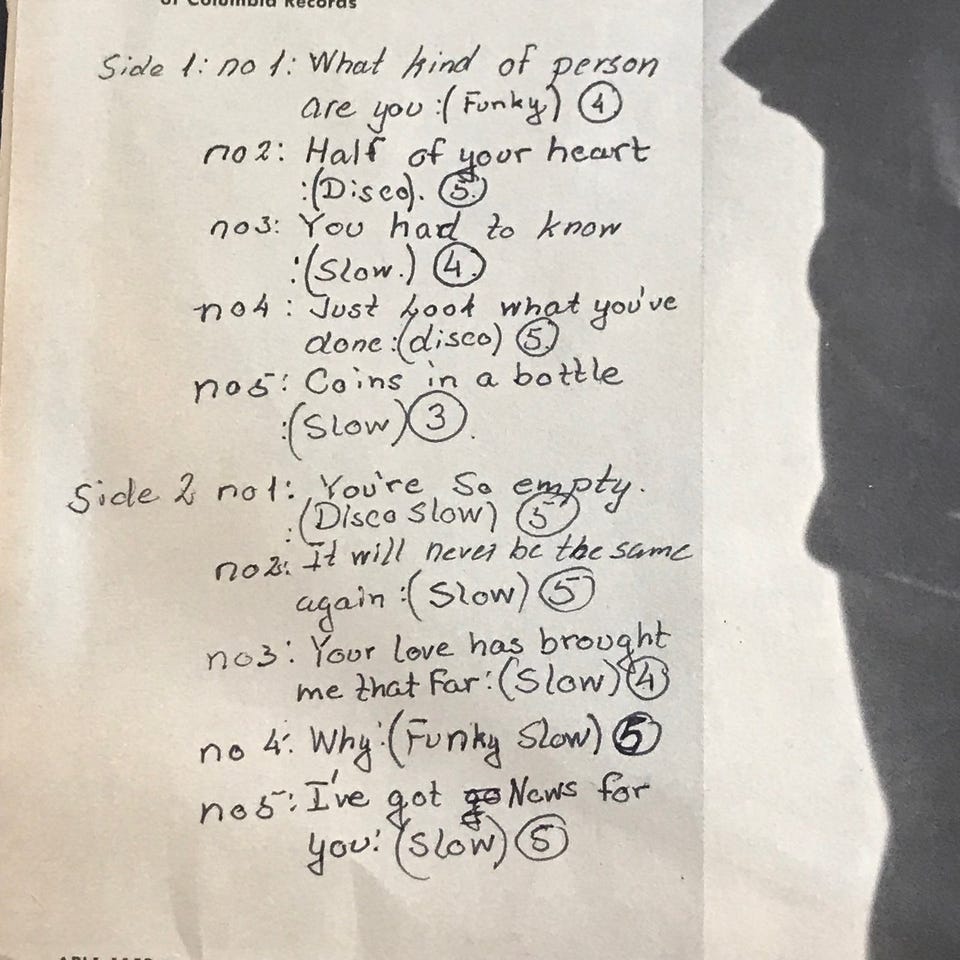 of Columbia Records
Side 1: no 1: What kind of person
are you :(Funky) 4
no2: Half of your heart
:(Disco). 5.
no3: You had to know
:(Slow.) 4.
no4: Just Look what you've
done:(disco) 5.
no5: Coins in a bottle
:(Slow) 3.
Side 2 no1: You're So empty.
:(Disco Slow) 5
no2: It will never be the same
again :(Slow) 5
no3: Your love has brought
me that far:(Slow) 4
no 4: Why:(Funky Slow) 5
no5: I've got go News for
you: (Slow) 5